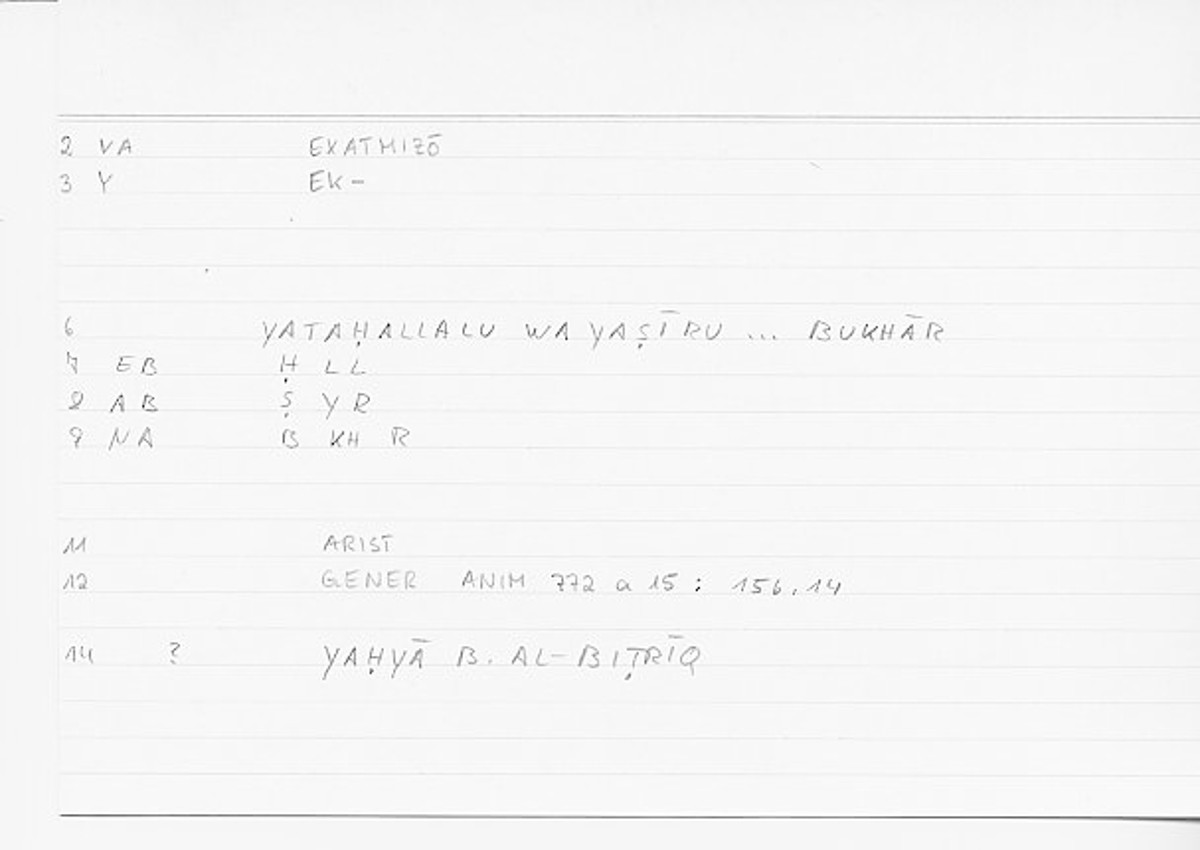 2 VA EKATMIZŌ
3 Y EK-
6 YATAḤALLALU WA YAṢĪRU ... BUKHĀR
7 EB Ḥ LL
8 AB Ṣ YR
9 NA B KH R
11 ARIST
12 GENER ANIM 772 a 15 : 156,14
14 ? YAḤYĀ B. AL-BIṬRĪQ